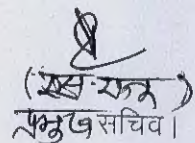 (एस० राजू)
प्रमुख सचिव।